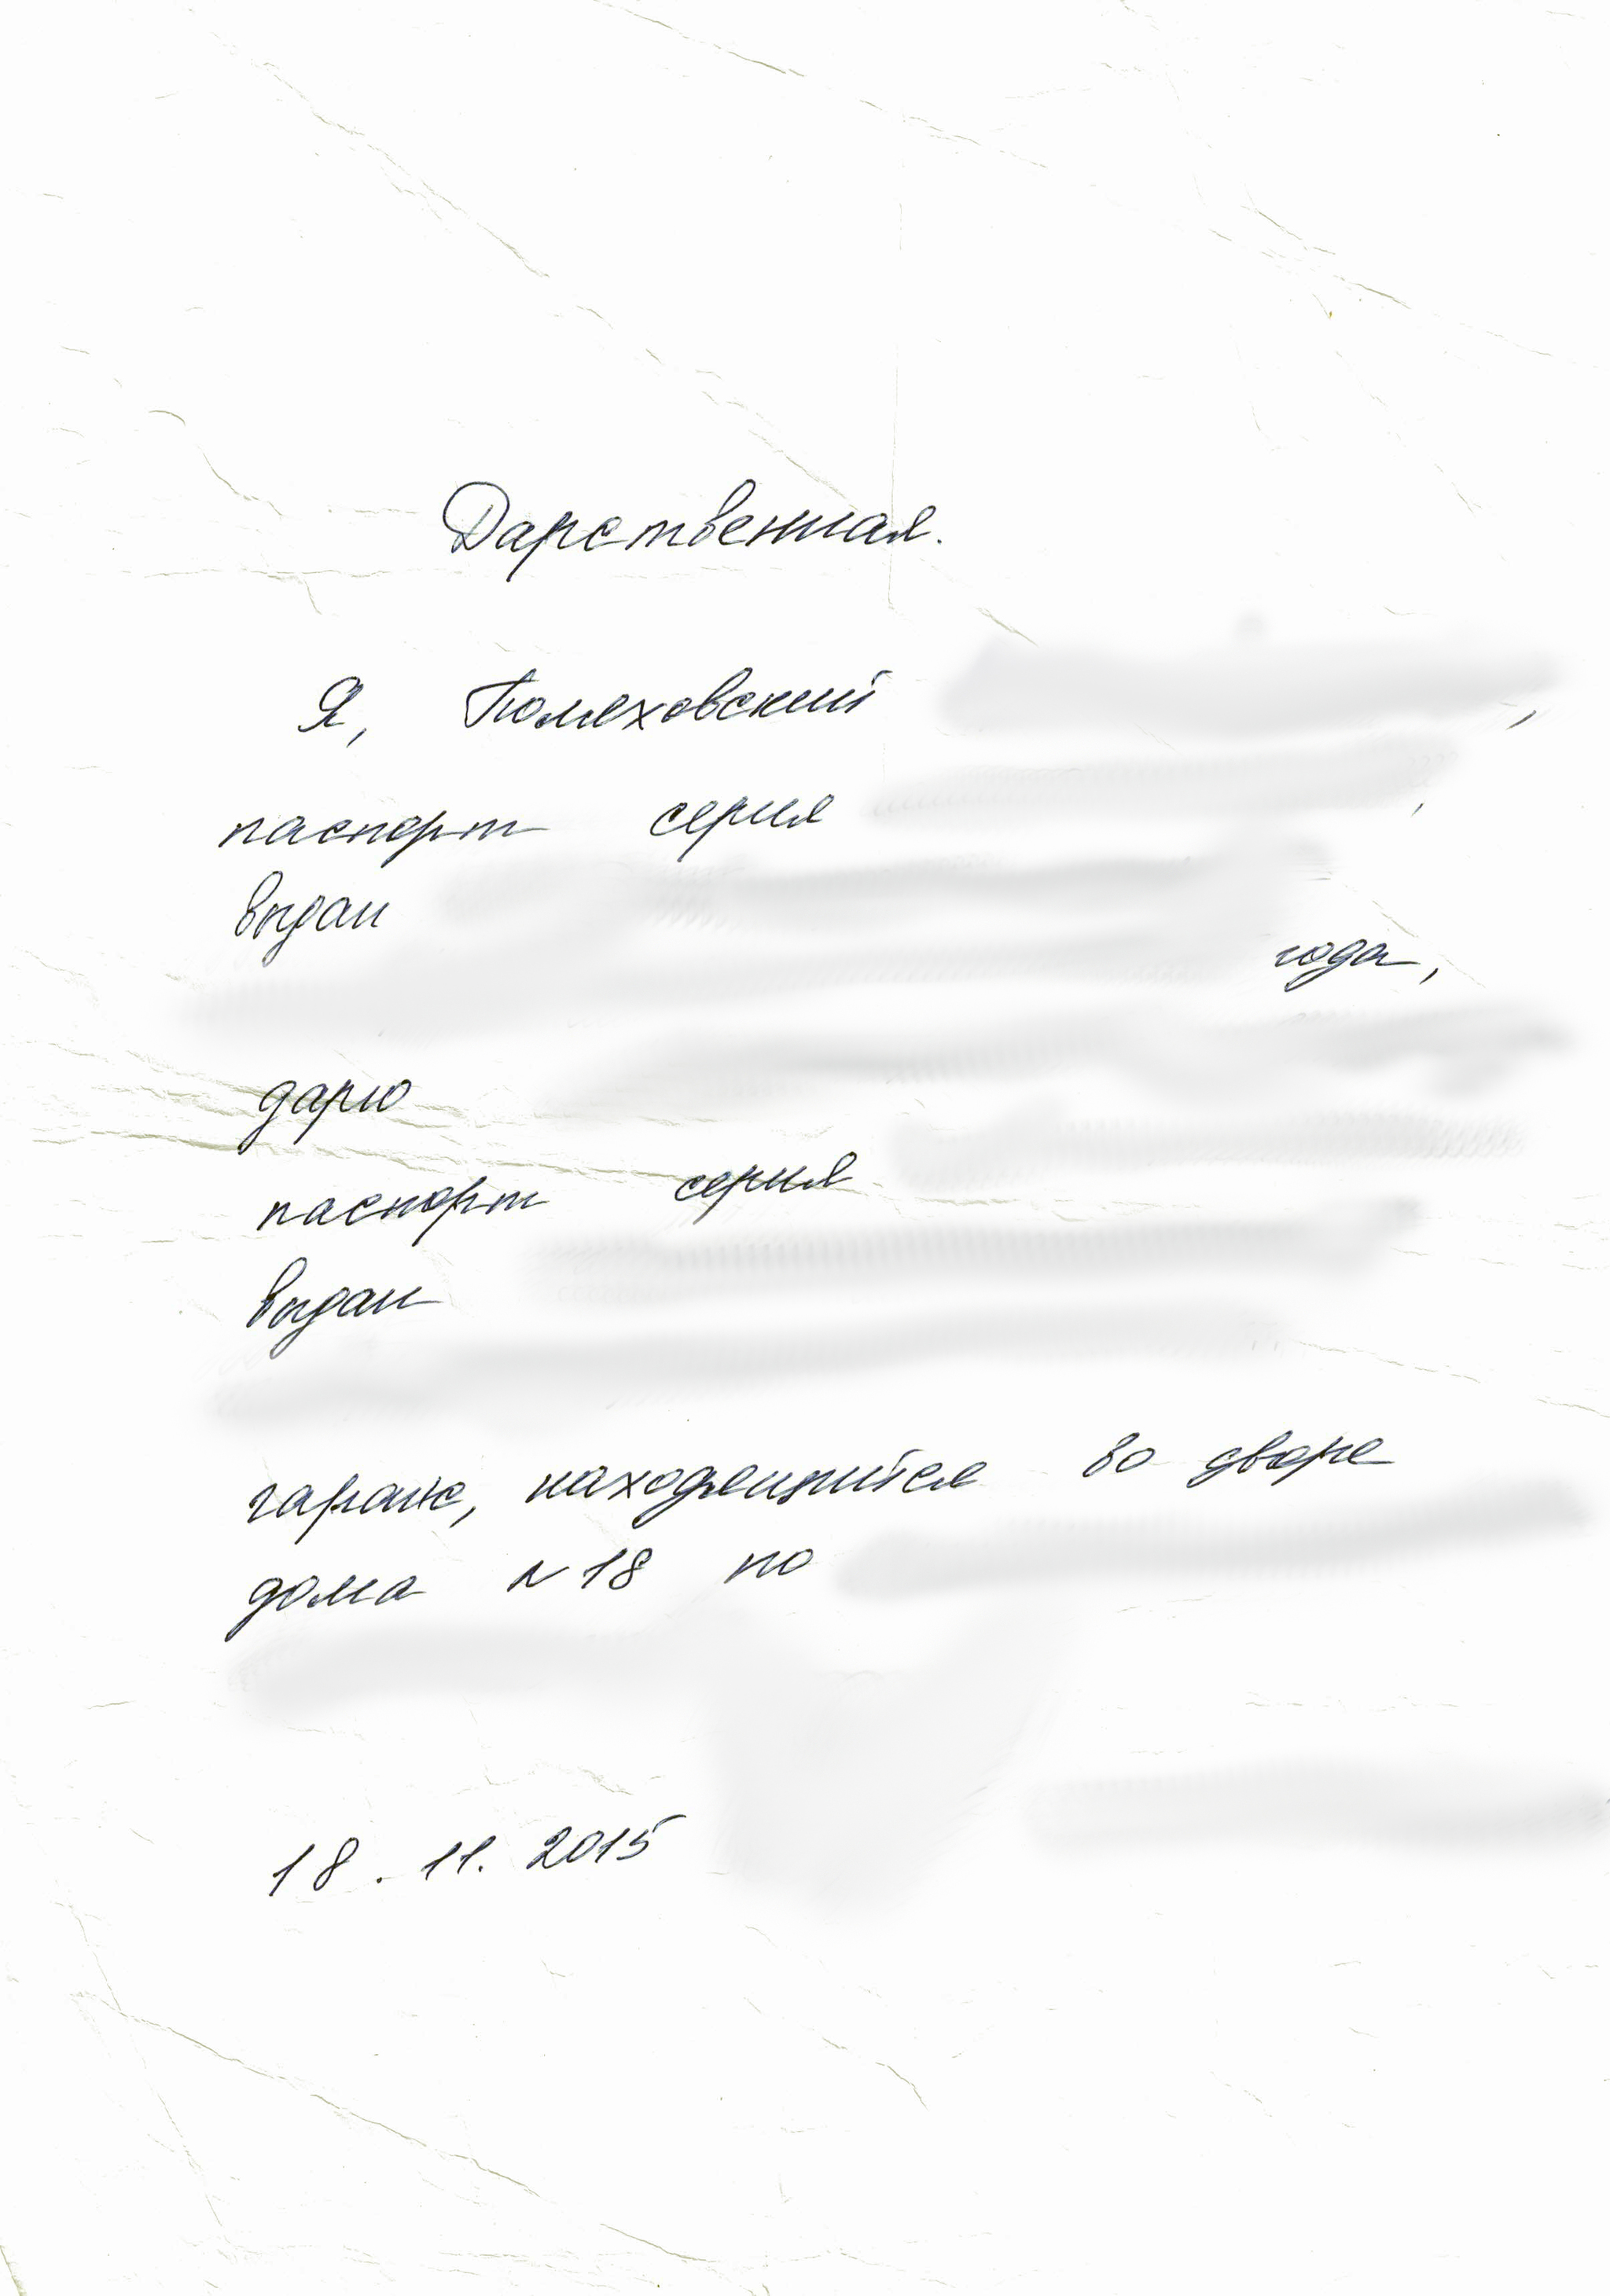 Дарственная.
Я, Помеховский ,
паспорт серия ,
выдан
года,
дарю
паспорт серия
выдан
гараж, находящийся во дворе
дома N 18 по
18. 11. 2015